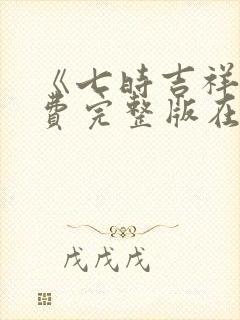 《七時吉祥
費完整版在
戊戊戊